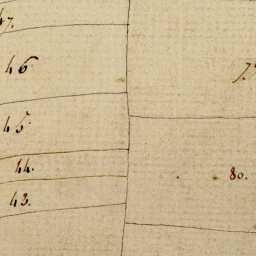 47.
46
45
44.
80.
43.